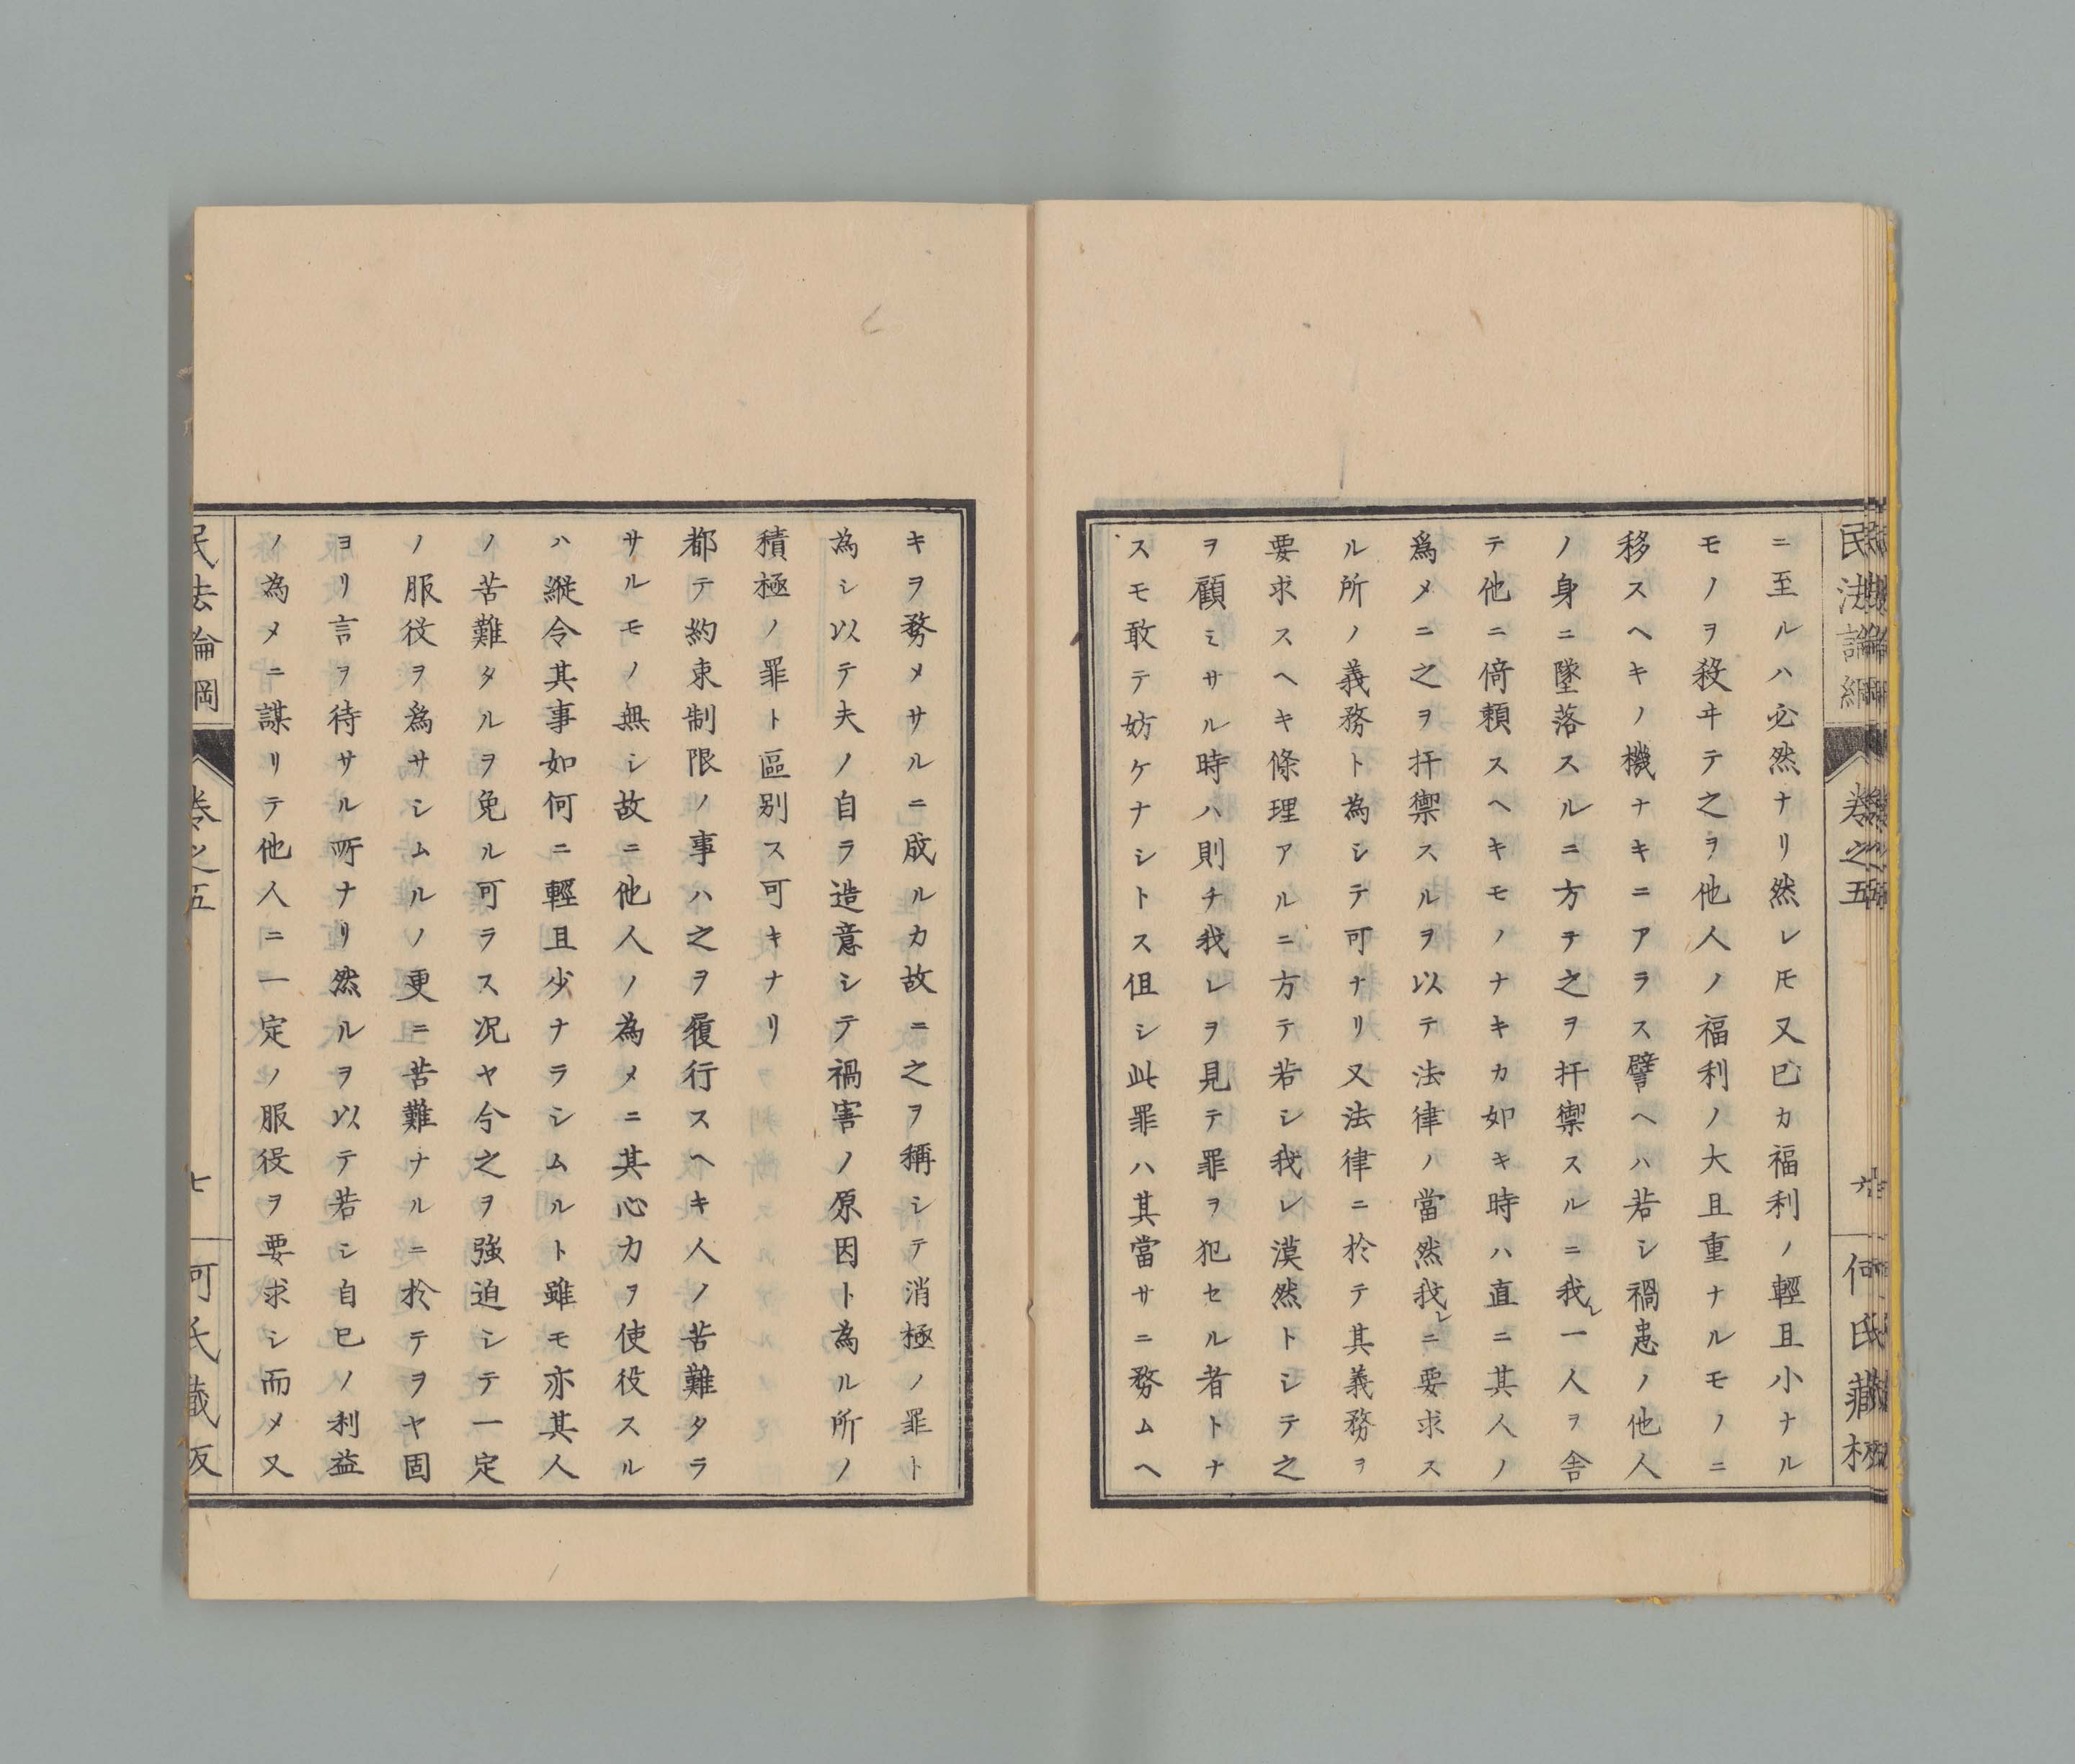 民法論綱
卷之五
六
何氏藏板
ニ至ルハ必然ナリ然レ𪜈又巳カ福利ノ輕且小ナル
モノヲ殺ヰテ之ヲ他人ノ福利ノ大且重ナルモノニ
移スヘキノ機ナキニアラス譬ヘハ若シ禍恚ノ他人
ノ身ニ墜落スルニ方テ之ヲ扞禦スルニ我レ一人ヲ舎
テ他ニ倚頼スヘキモノナキカ如キ時ハ直ニ其人ノ
爲メニ之ヲ扞禦スルヲ以テ法律ノ當然我レニ要求ス
ル所ノ義務ト為シテ可ナリ又法律ニ於テ其義務ヲ
要求スヘキ條理アルニ方テ若シ我レ漠然トシテ之
ヲ顧ミサル時ハ則チ我レヲ見テ罪ヲ犯セル者トナ
スモ敢テ妨ケナシトス但シ此罪ハ其當サニ務ムヘ
キヲ務メサルニ成ルカ故ニ之ヲ稱シテ消極ノ罪ト
為シ以テ夫ノ自ラ造意シテ禍害ノ原因ト為ル所ノ
積極ノ罪ト區别ス可キナリ
都テ約束制限ノ事ハ之ヲ履行スヘキ人ノ苦難タラ
サルモノ無シ故ニ他人ノ為メニ其心力ヲ使役スル
ハ縱令其事如何ニ輕且少ナラシムルト雖モ亦其人
ノ苦難タルヲ免ル可ラス况ヤ今之ヲ強迫シテ一定
ノ服役ヲ爲サシムルノ更ニ苦難ナルニ於テヲヤ固
ヨリ言ヲ待サル所ナリ然ルヲ以テ若シ自巳ノ利益
ノ為メニ謀リテ他人ニ一定ノ服役ヲ要求シ而メ又
民法論綱
卷之五
七
何氏藏板